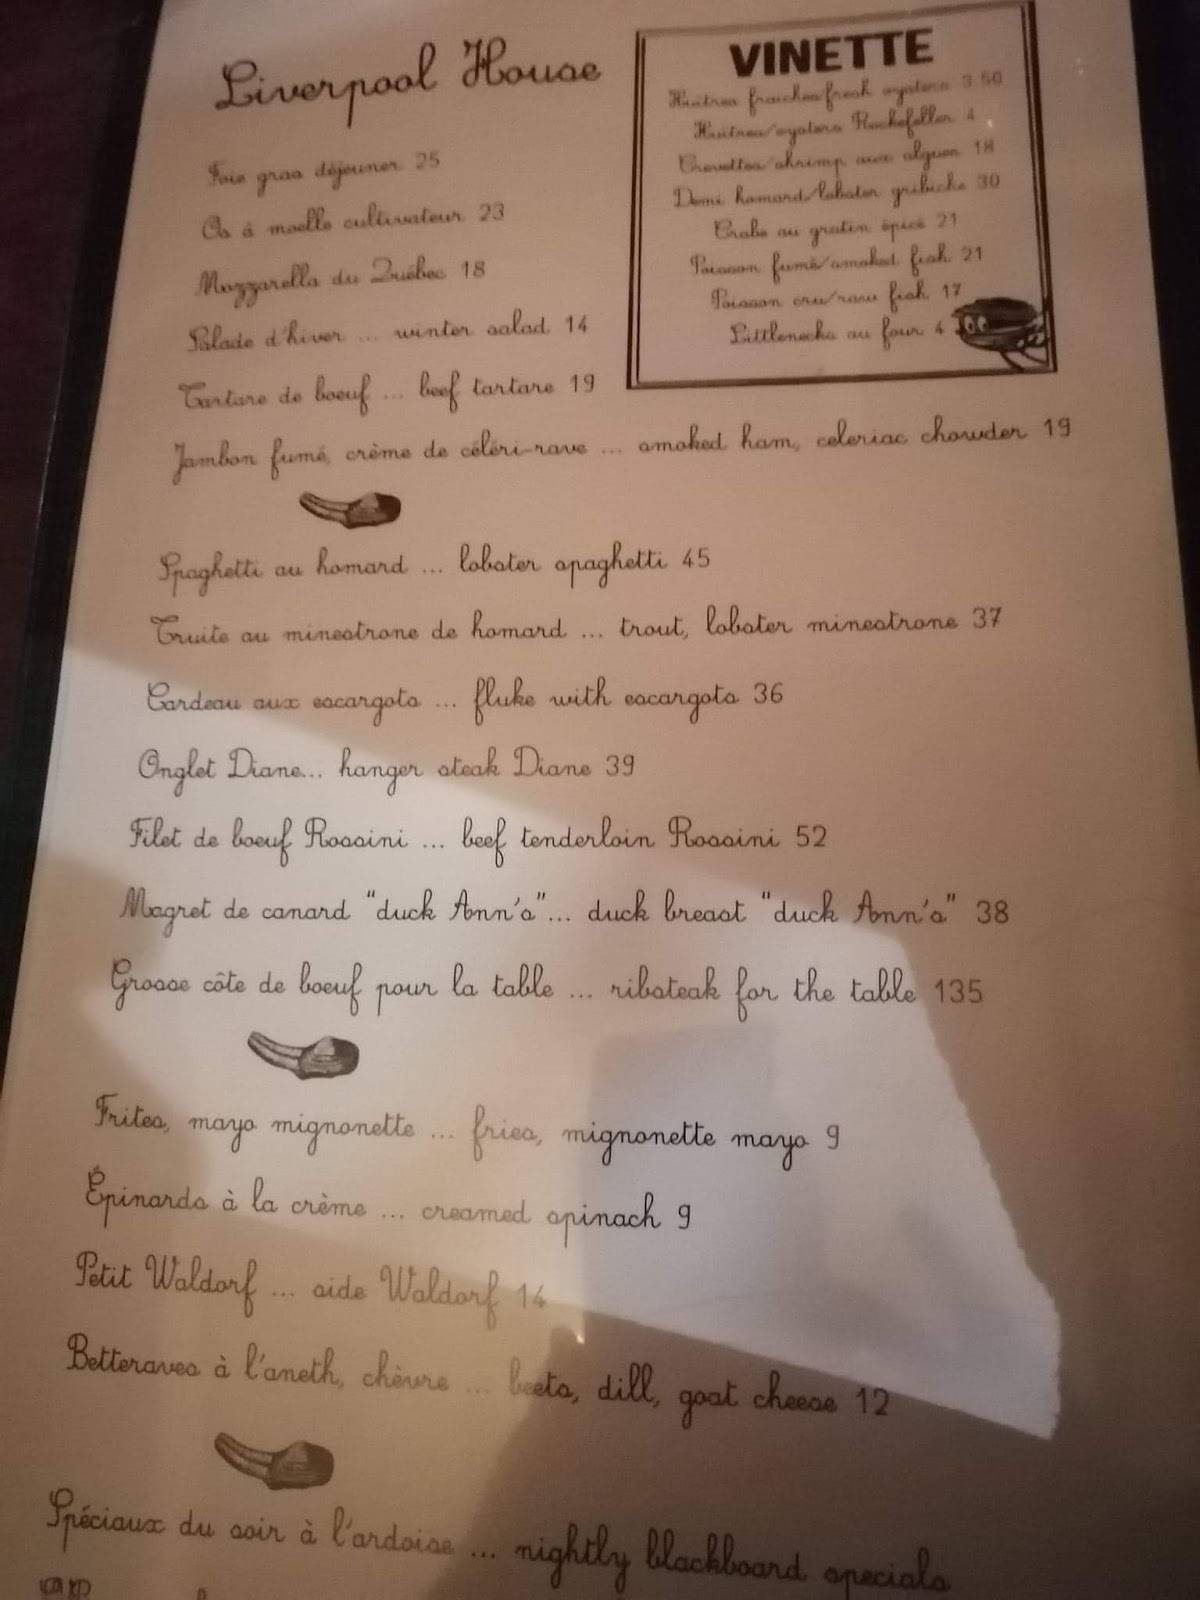 Liverpool House
Foie gras déjeuner 25
Os à moelle cultivateur 23
Mozzarella du Québec 18
Salade d'hiver ... winter salad 14
Tartare de boeuf ... beef tartare 19
Jambon fumé, crème de céleri-rave ... smoked ham, celeriac chowder 19
VINETTE
Huitres fraiches/fresh oysters 3.50
Huitres/oysters Rockefeller 4
Crevettes/shrimp aux algues 18
Demi homard/lobster gribiche 30
Crabe au gratin épicé 21
Poisson fumé/smoked fish 21
Poisson cru/raw fish 17
Littlenecks au four 4
Spaghetti au homard ... lobster spaghetti 45
Truite au minestrone de homard ... trout, lobster minestrone 37
Cardeau aux escargots ... fluke with escargots 36
Onglet Diane... hanger steak Diane 39
Filet de boeuf Rossini ... beef tenderloin Rossini 52
Magret de canard "duck Ann's"... duck breast "duck Ann's" 38
Grosse côte de boeuf pour la table ... ribsteak for the table 135
Frites, mayo mignonette ... fries, mignonette mayo 9
Épinards à la crème ... creamed spinach 9
Petit Waldorf ... side Waldorf 14
Betteraves à l'aneth, chèvre ... beets, dill, goat cheese 12
Spéciaux du soir à l'ardoise ... nightly blackboard specials